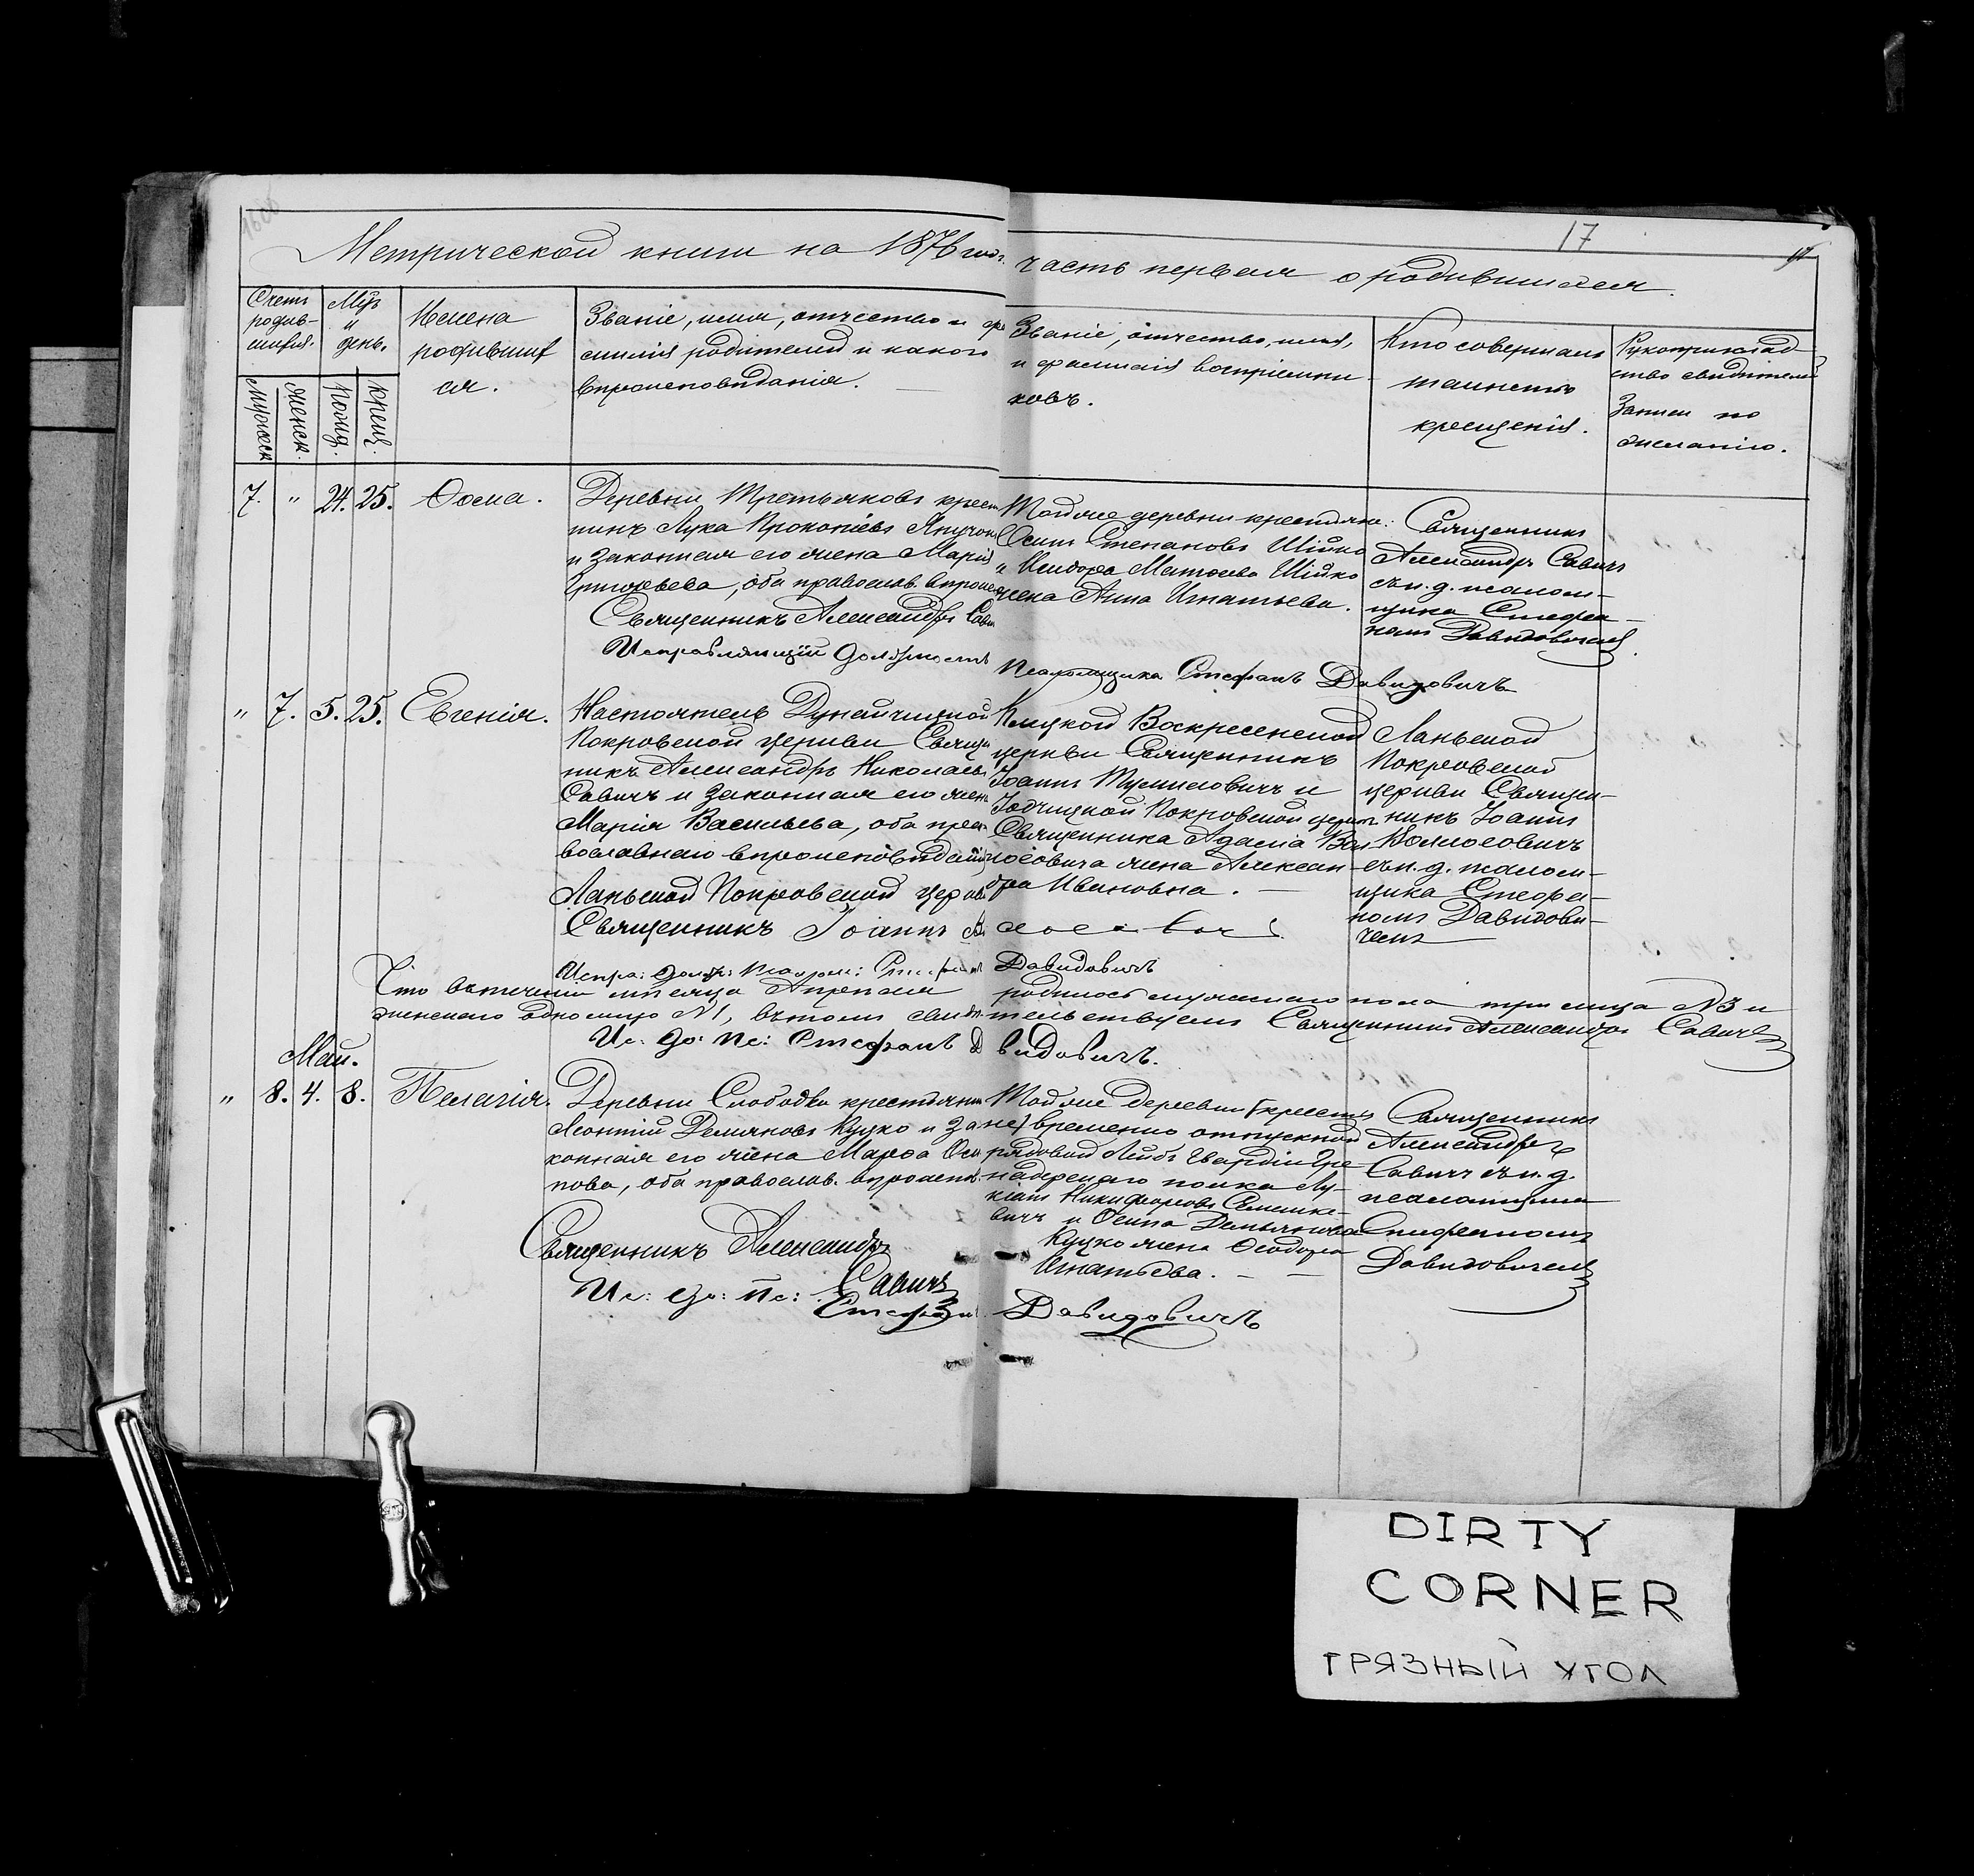 17
Метрической книги на 1876 годъ часть первая о родившихся.
Счетъ
родив-
шихся.
мужеск.
женск.
Мѣс.
и
день.
рожд.
крещ.
Имена
родивших
ся.
Званіе, имя, отчество и фа
милія родителей и какого
вѣроисповѣданія.
Званіе, отчество, имя,
и фамилія воспріемни-
ковъ.
Кто совершалъ
таинство
крещенія.
Рукоприклад-
ство свидѣтелей
Записи по
желанію.
7. " 24. 25. Ѳома.
Деревни Третьяковъ крест
нинъ Лука Прокопіевъ
и законная его жена Марія
Григорьева, оба православ. вѣроисп
Священникъ Александръ Сави
Исправляющій должность
Той же деревни крестьяне:
Осипъ Степановъ Шійко
и Исидора Матѳева Шійко
жена Анна Игнатьева.
Псаломщика Стефанъ Давидовичъ
Священникъ
Александръ Савичъ
съ и. д. псалом-
щика Стефа-
номъ Давидовичемъ.
" 7. 5. 25. Евгенія.
Настоятель Дунайчицкой
Покровской церкви Свящ
никъ Александръ Николаевъ
Савичъ и законная его жена
Марія Васильева, оба пра-
вославнаго вѣроисповѣданія
Ланьской Покровской церкв
Священникъ Іоаннъ
Испра: долж: псалом: Стефанъ Давидовичъ
Клецкой Воскресенской
церкви Священникъ
Іоаннъ и
Покровской церкви
Священника Адама Вол
жена Алексан-
дра Ивановна.
Ланьской
Покровской
церкви Священ-
никъ Іоаннъ
съ и. д. псалом-
щика Стефа-
номъ Давидови-
чемъ
Что въ теченіи мѣсяца Апрѣля родилось мужескаго пола три лица №3 и
женскаго одно лицо №1, въ томъ свидѣтельствуемъ Священникъ Александръ Савичъ
Ис: до: пс: Стефанъ Давидовичъ.
Май.
" 8. 4. 8. Пелагія.
Деревни Слободки крестьянин
Леонтій Демяновъ Куцко и за
конная его жена Марѳа Оси
пова, оба православ. вѣроиспов.
Священникъ Александръ
Савичъ
Ис: до: пс: Стефанъ Давидовичъ
Той же деревни крестья
не, временно отпускной
рядовой Лейбъ Гвардіи Гре
надерскаго полка Лу-
кіанъ Никифоровъ Семашке-
вичъ и Осипа Демьянова
Куцко жена Ѳеодора
Игнатьева.
Священникъ
Александръ
Савичъ съ и. д.
псаломщика
Стефаномъ
Давидовичемъ
DIRTY
CORNER
ГРЯЗНЫЙ УГОЛ